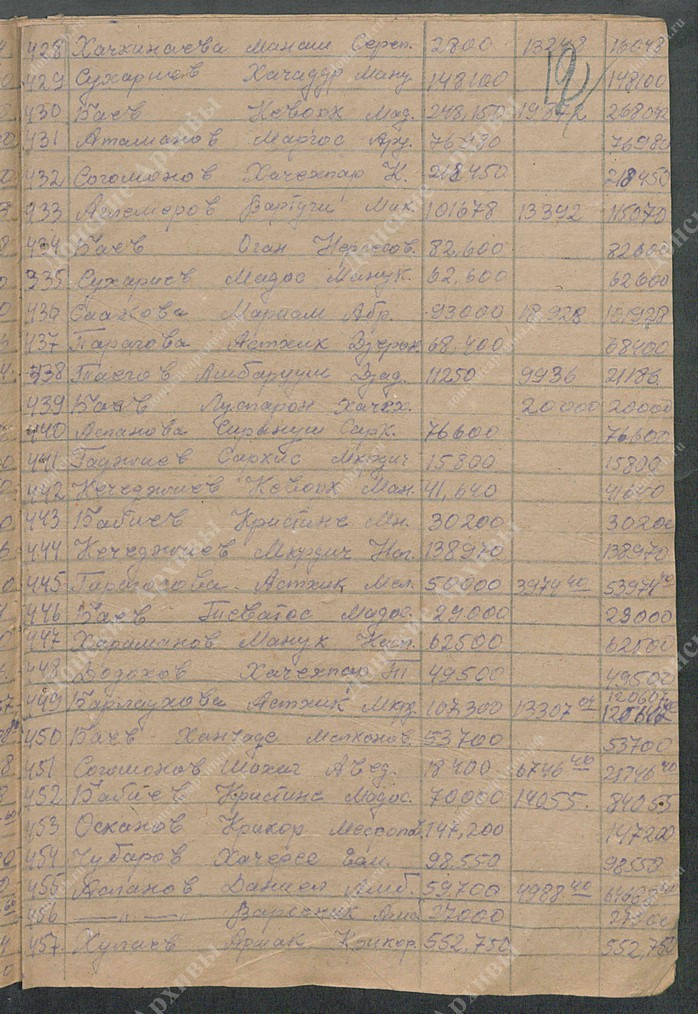 428 Хачкинаева Мансии Сереп. 2800 13248 16048
12
429 Сухариев Хачадур Ману. 148100 148100
430 Баев Кеворк Мад. 248,150 19872 268042
431 Атаманов Маргос Ару. 76980 76980
432 Согомонов Хачехпар К. 218450 218450
433 Варгуги Мак. 101678 13392 115070
434 Баев Оган Нерсесов. 82,600 82600
335 Сухариев Мадос Манук. 62,600 62600
436 Саакова Мариам Абр. 93000 18,928 101928
437 Парагова Астхик Дзерон. 68,400 68400
438 Амбарцум Дзад. 11250 9936 21186
439 Баев Луспарон Хачех. 20000 20000
440 Асланова Сирануш Сарк. 76,600 76,600
441 Гаунчиев Саркис Мкрдич 15800 15800
442 Кечеджиев Кеворк Ман. 41,640 41640
443 Бабиев Кристине Мн. 30200 30200
444 Кечеджиев Мкрдич Ног. 138970 138970
445 Астхик Мел. 50000 3974 40 53974 40
446 Баев Мадос. 29000 29000
447 Хараманов Манук Насп. 62500 62500
448 Дозохов Хачехпар 49500 49500
449 Астхик Мкр. 107,300 13307 07 120607
450 Баев Ханчаде Мелконов. 53700 53700
451 Согомонов Авед. 18400 6746 40 25746 40
452 Бабиев Кристина Мадос. 70000 14055. 84055
453 Осканов Крикор 147,200 147200
454 Чубаров Хачерес 98.550 98550
455 Асланов Даниел Амб. 59700 4988.40
456 —„— —„— Варсеник 27000 27000
457. Хулаев Армак Крикор. 552,750 552,750